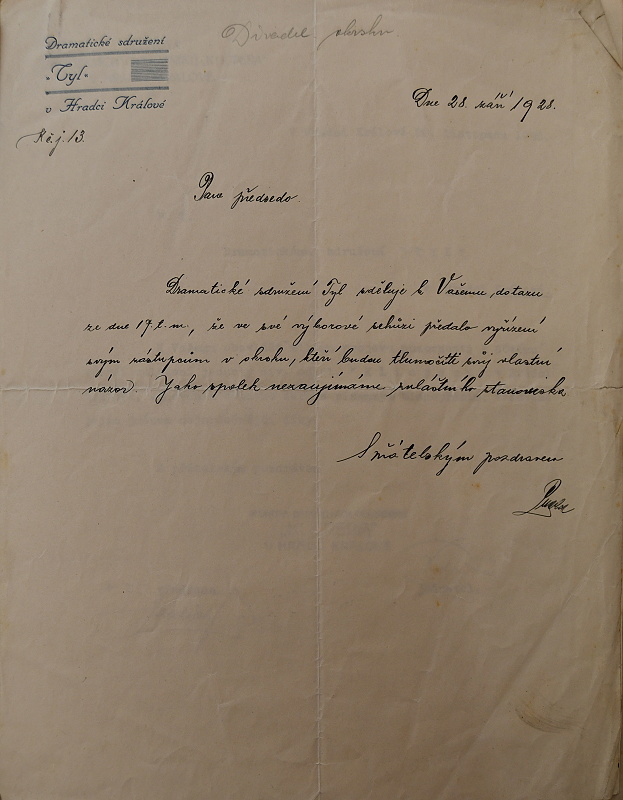 Divadel. okrsku.
Dramatické sdružení
"Tyl"
v Hradci Králové
Dne 28. září 1928.
č.j. 13.
Pane předsedo.
Dramatické sdružení Tyl sděluje k Vašemu dotazu
ze dne 17. t. m., že ve své výborové schůzi předalo vyřízení
svým zástupcům v okrsku, kteří budou tlumočiti svůj vlastní
názor. Jako spolek nezaujímáme zvláštního stanoviska
S přátelským pozdravem